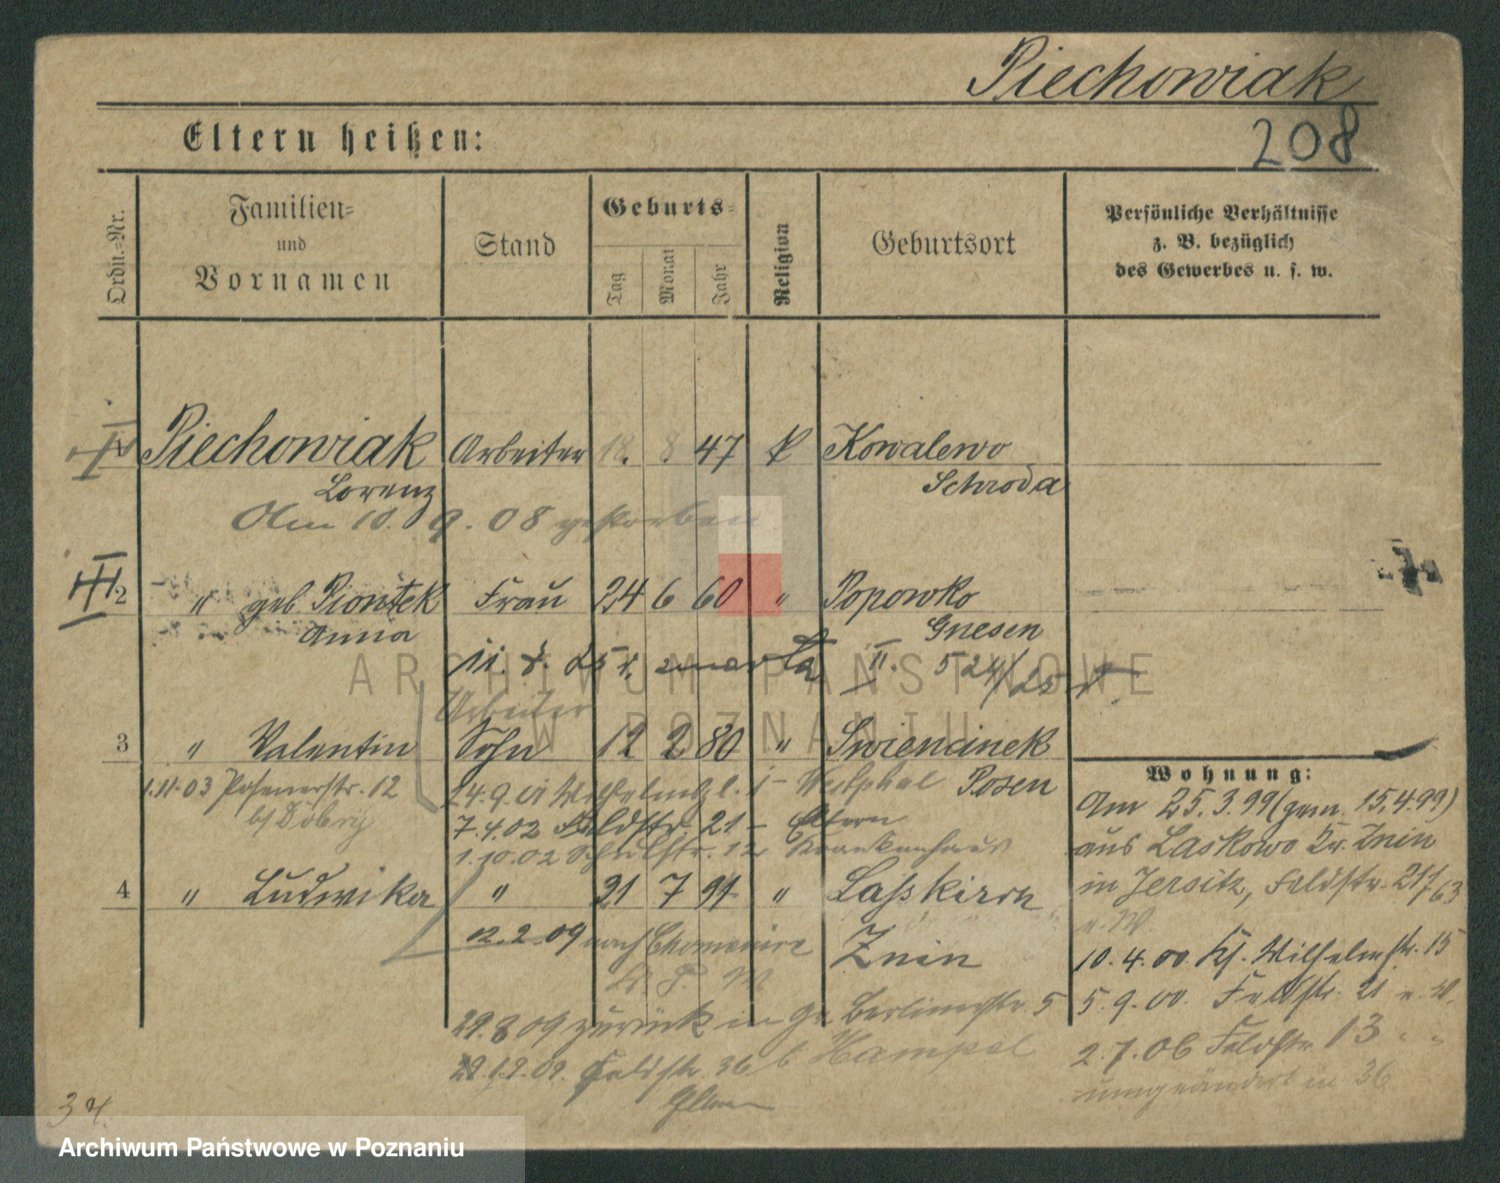 Piechowiak
208
Eltern heißen:
Ordn.-Nr.
Familien-
und
Vornamen
Stand
Geburts-
Tag
Monat
Jahr
Religion
Geburtsort
Persönliche Verhältnisse
z. B. bezüglich
des Gewerbes u. s. w.
Piechowiak Arbeiter 18. 8 47 k Kowalewo
Lorenz Schroda
Am 10. 9. 08 gestorben
2 " geb. Piontek Frau 24 6 60 " Popowko
Anna Gnesen
zmarła II. 524/25
Arbeiter
3 " Valentin Sohn 12 2 80 " Swiencinek
Posen
1.11.03 Posenerstr. 12
24.9.01 Westphal
7.4.02 Feldstr. 21 - Eltern
1.10.02 Schulstr. 12 Krankenhaus
4 " Ludwika " 21 7 91 " Lasskirch
Znin
12.2.09 nach
29.8.09 zurück in Gr. Berlinerstr. 5
Feldstr. 36 b Hampel
Eltern
Wohnung:
Am 25.3.99 (gem. 15.4.99)
aus Laskowo Kr. Znin
in Jersitz, Feldstr. 21
10.4.00. Kf. Wilhelmstr. 15
5.9.00. Feldstr. 21 e. W.
2.7.06 Feldstr. 13 " "
umgeändert in 36
34.
ARCHIWUM PAŃSTWOWE
W POZNANIU
Archiwum Państwowe w Poznaniu